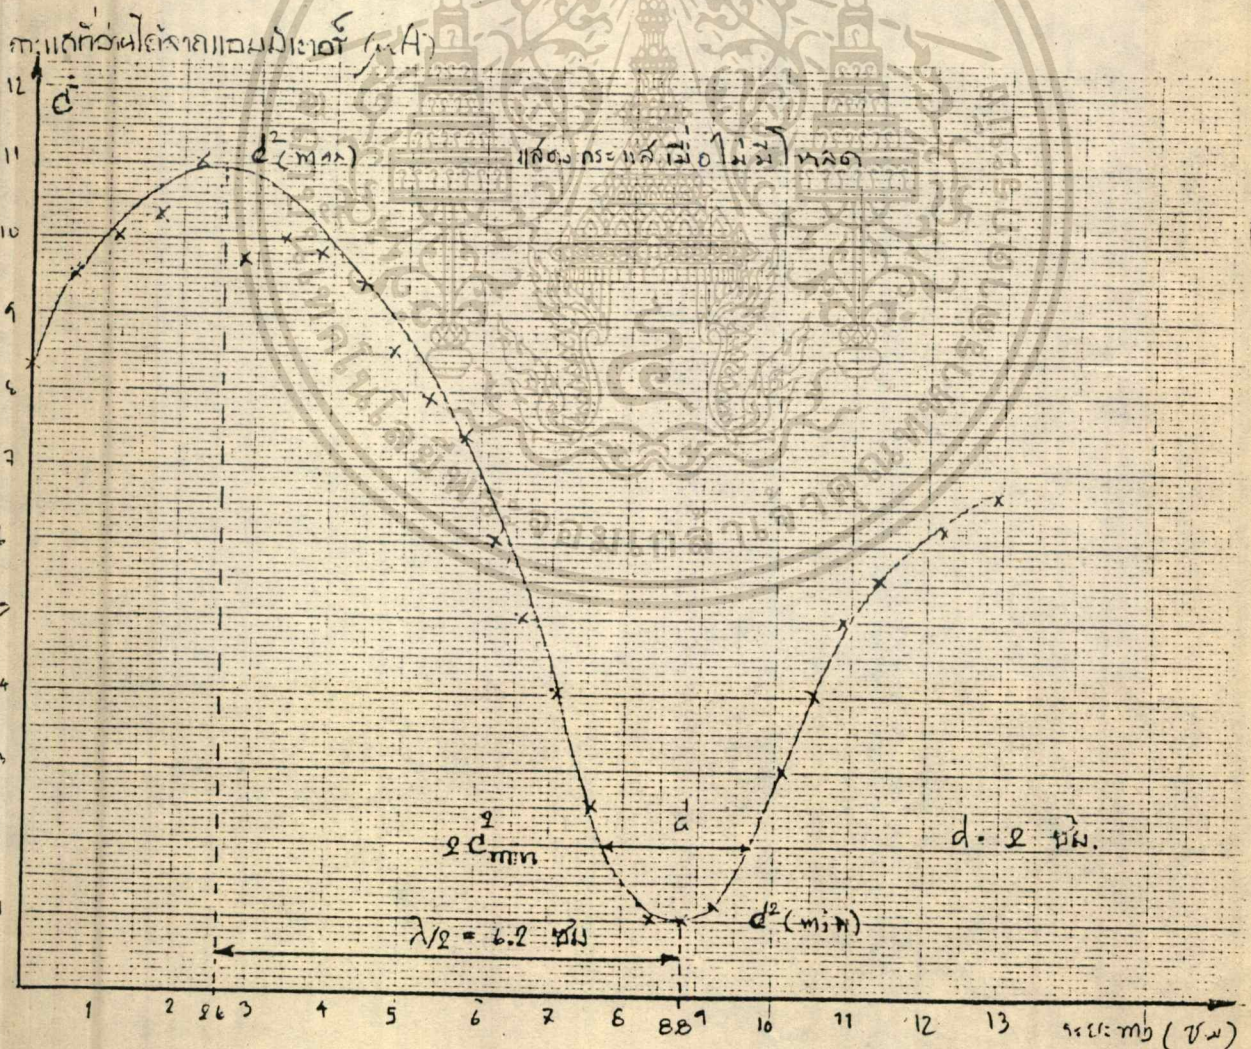 กระแสที่อ่านได้จากแอมมิเตอร์ (μA)
12
11
10
9
8
7
4
3
1
d²(max)
แสดงกระแสเมื่อไม่มีโหลด
d
d = 2 ซม.
d²(min)
λ/2 = 6.2 ซม
1 2 2.6 3 4 5 6 7 8 8.8 9 10 11 12 13
ระยะทาง (ซ.ม)